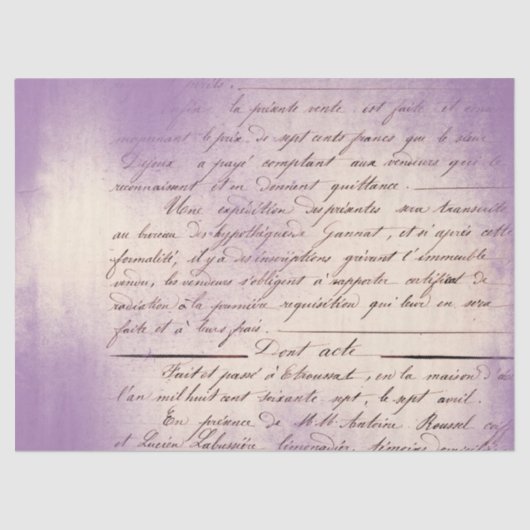 Enfin la présente vente est faite et
moyennant le prix de sept cents francs que le sieur
Dejoux a payé comptant aux vendeurs qui le
reconnaissent et en donnent quittance.
Une expédition des présentes sera transcrite
au bureau des hypothèques de Gannat, et si après cette
formalité, il y a des inscriptions grévant l'immeuble
vendu, les vendeurs s'obligent à rapporter certificat de
radiation à la première requisition qui leur en sera
faite et à leurs frais.
Dont acte
Fait et passé à Etroussat, en la maison d
l'an mil huit cent soixante sept, le sept avril.
En présence de M.M. Antoine Roussel
et Lucien Labussière, limonadier, témoins